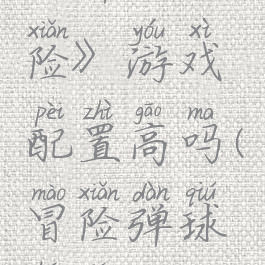 xiǎn yóu xì
险》游戏
pèi zhì gāo ma
配置高吗(
mào xiǎn dàn qiú
冒险弹球